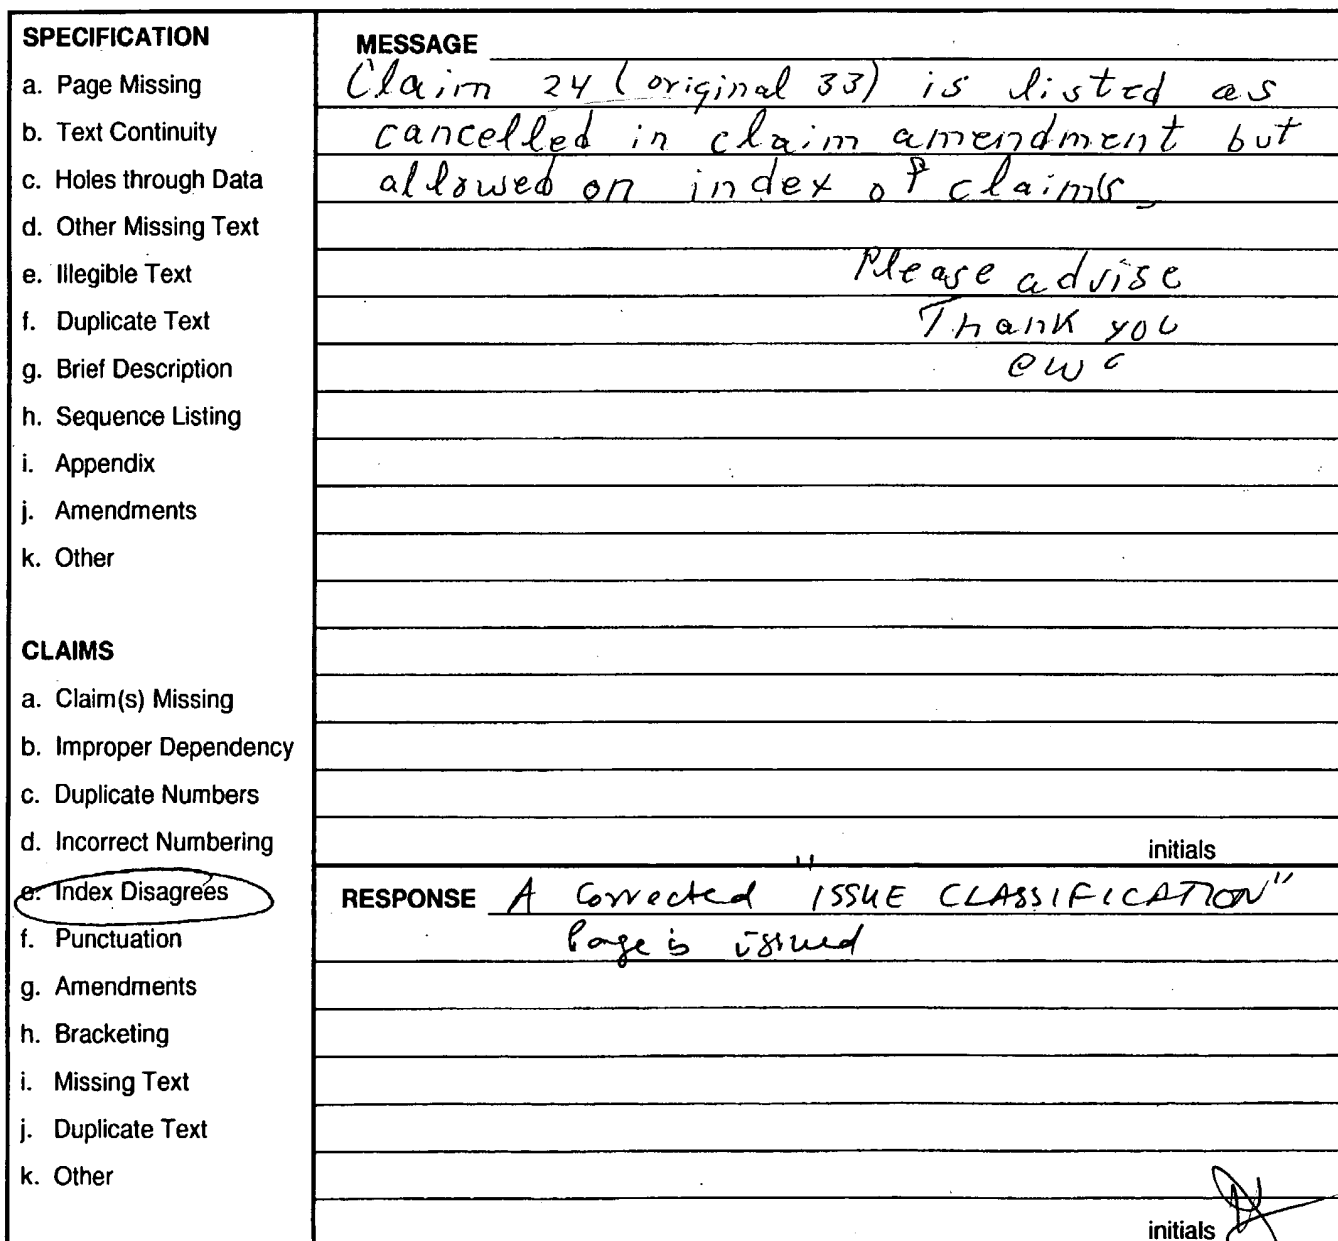 SPECIFICATION
a. Page Missing
b. Text Continuity
c. Holes through Data
d. Other Missing Text
e. Illegible Text
f. Duplicate Text
g. Brief Description
h. Sequence Listing
i. Appendix
j. Amendments
k. Other
CLAIMS
a. Claim(s) Missing
b. Improper Dependency
c. Duplicate Numbers
d. Incorrect Numbering
e. Index Disagrees
f. Punctuation
g. Amendments
h. Bracketing
i. Missing Text
j. Duplicate Text
k. Other
MESSAGE
Claim 24 (original 33) is listed as
cancelled in claim amendment but
allowed on index of claims.
Please advise
Thank you
initials
RESPONSE A Corrected "ISSUE CLASSIFICATION"
Page is issued
initials